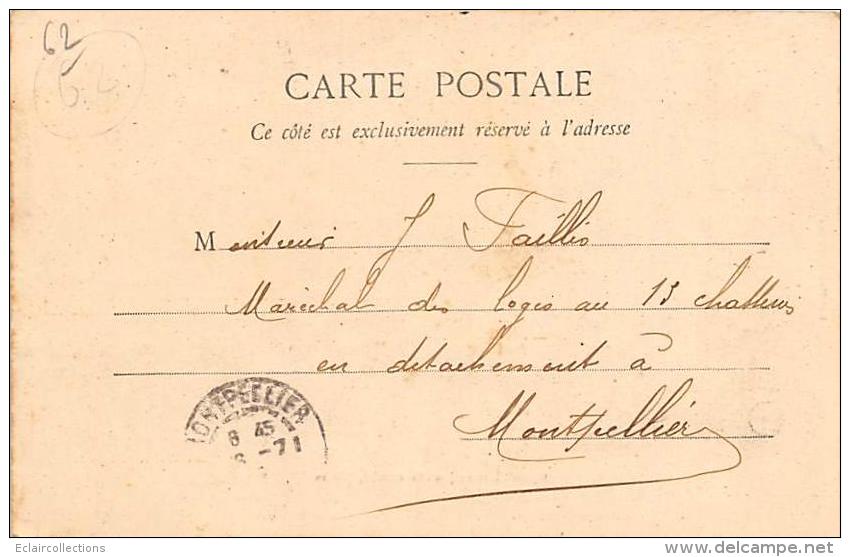 62
62
CARTE POSTALE
Ce côté est exclusivement réservé à l'adresse
Monsieur J Faillis
Maréchal des logis au 13 chasseurs
en détachement à
Montpellier
MONTPELLIER
8 45
-71
Eclaircollections
delcampe.net